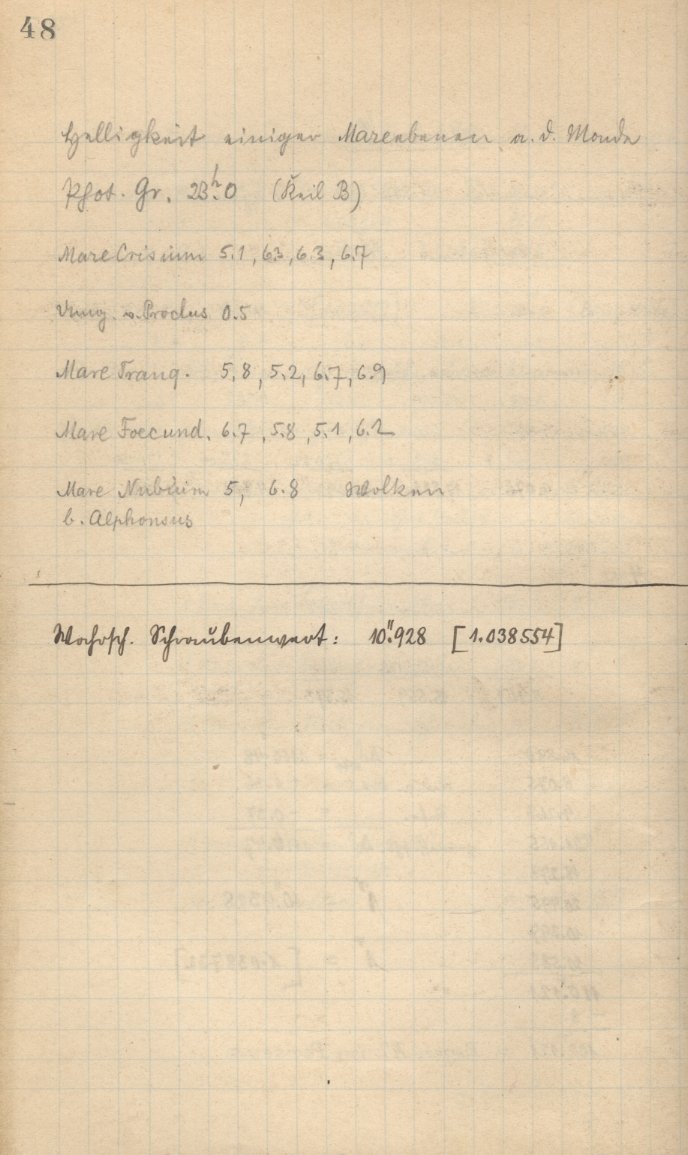 48
Helligkeit einiger Mareebenen a. d. Monde
Phot. Gr. 23h.0 (Keil B)
Mare Crisium 5.1, 6.3, 6.3, 6.7
Umg. v. Proclus 0.5
Mare Tranq. 5.8, 5.2, 6.7, 6.9
Mare Foecund. 6.7, 5.8, 5.1, 6.2
Mare Nubium 5, 6.8 Wolken
b. Alphonsus
Wahrsch. Schraubenwert: 10".928 [1.038554]